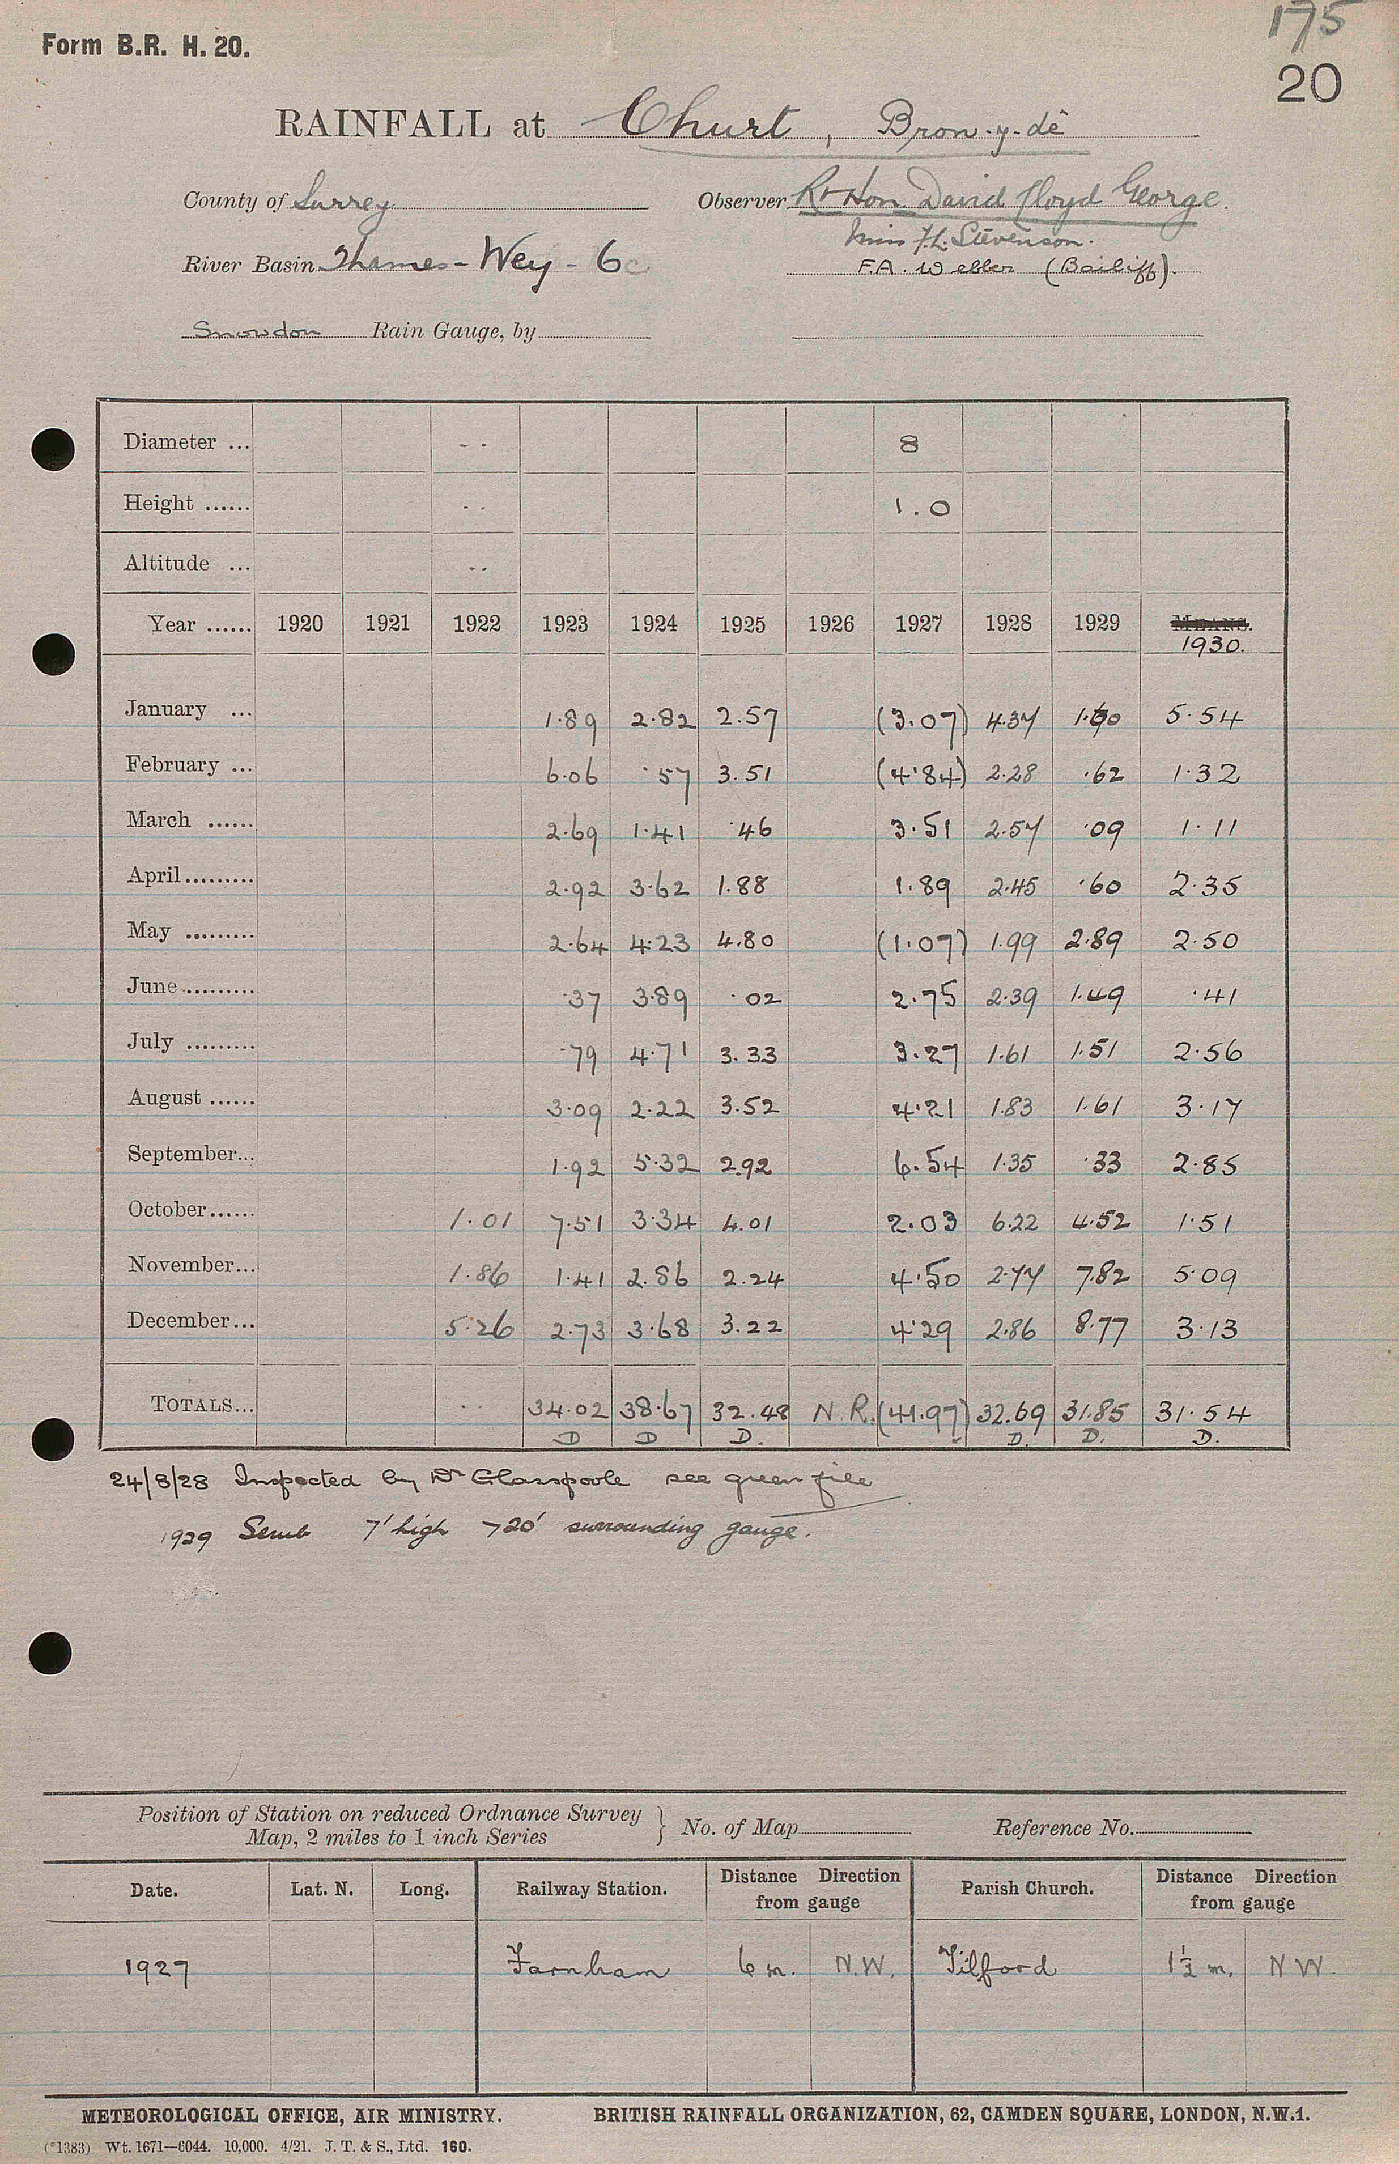 175
Form B.R. H. 20.
20
RAINFALL at Churt, Bron-y-dê
County of Surrey Observer Rt Hon David Lloyd George.
Miss F.L. Stevenson.
River Basin Thames - Wey - 6c F.A. Webber (Bailiff).
Snowdon Rain Gauge, by
Diameter ... - - 8
Height ...... - - 1.0
Altitude ... - -
Year ...... 1920 1921 1922 1923 1924 1925 1926 1927 1928 1929 MEANS.
1930.
January ... 1.89 2.82 2.57 (3.07) 4.37 1.60 5.54
February ... 6.06 .57 3.51 (4.84) 2.28 .62 1.32
March ...... 2.69 1.41 .46 3.51 2.57 .09 1.11
April......... 2.92 3.62 1.88 1.89 2.45 .60 2.35
May ......... 2.64 4.23 4.80 (1.07) 1.99 2.89 2.50
June......... .37 3.89 .02 2.75 2.39 1.49 .41
July ......... .79 4.71 3.33 3.27 1.61 1.51 2.56
August ...... 3.09 2.22 3.52 4.21 1.83 1.61 3.17
September... 1.92 5.32 2.92 6.54 1.35 .33 2.85
October...... 1.01 7.51 3.34 4.01 2.03 6.22 4.52 1.51
November... 1.86 1.41 2.86 2.24 4.50 2.77 7.82 5.09
December... 5.26 2.73 3.68 3.22 4.29 2.86 8.77 3.13
TOTALS... - - 34.02 38.67 32.48 N.R. (41.97) 32.69 31.85 31.54
D D D. D. D. D.
24/8/28 Inspected by Dr Glasspoole see green file
1929 Scrub 7' high >20' surrounding gauge.
Position of Station on reduced Ordnance Survey
Map, 2 miles to 1 inch Series } No. of Map Reference No.
Date. Lat. N. Long. Railway Station. Distance Direction from gauge Parish Church. Distance Direction from gauge
1927 Farnham 6 m. N.W. Tilford 1½ m. NW.
METEOROLOGICAL OFFICE, AIR MINISTRY. BRITISH RAINFALL ORGANIZATION, 62, CAMDEN SQUARE, LONDON, N.W.1.
(*1383) Wt. 1671—6044. 10,000. 4/21. J. T. & S., Ltd. 160.